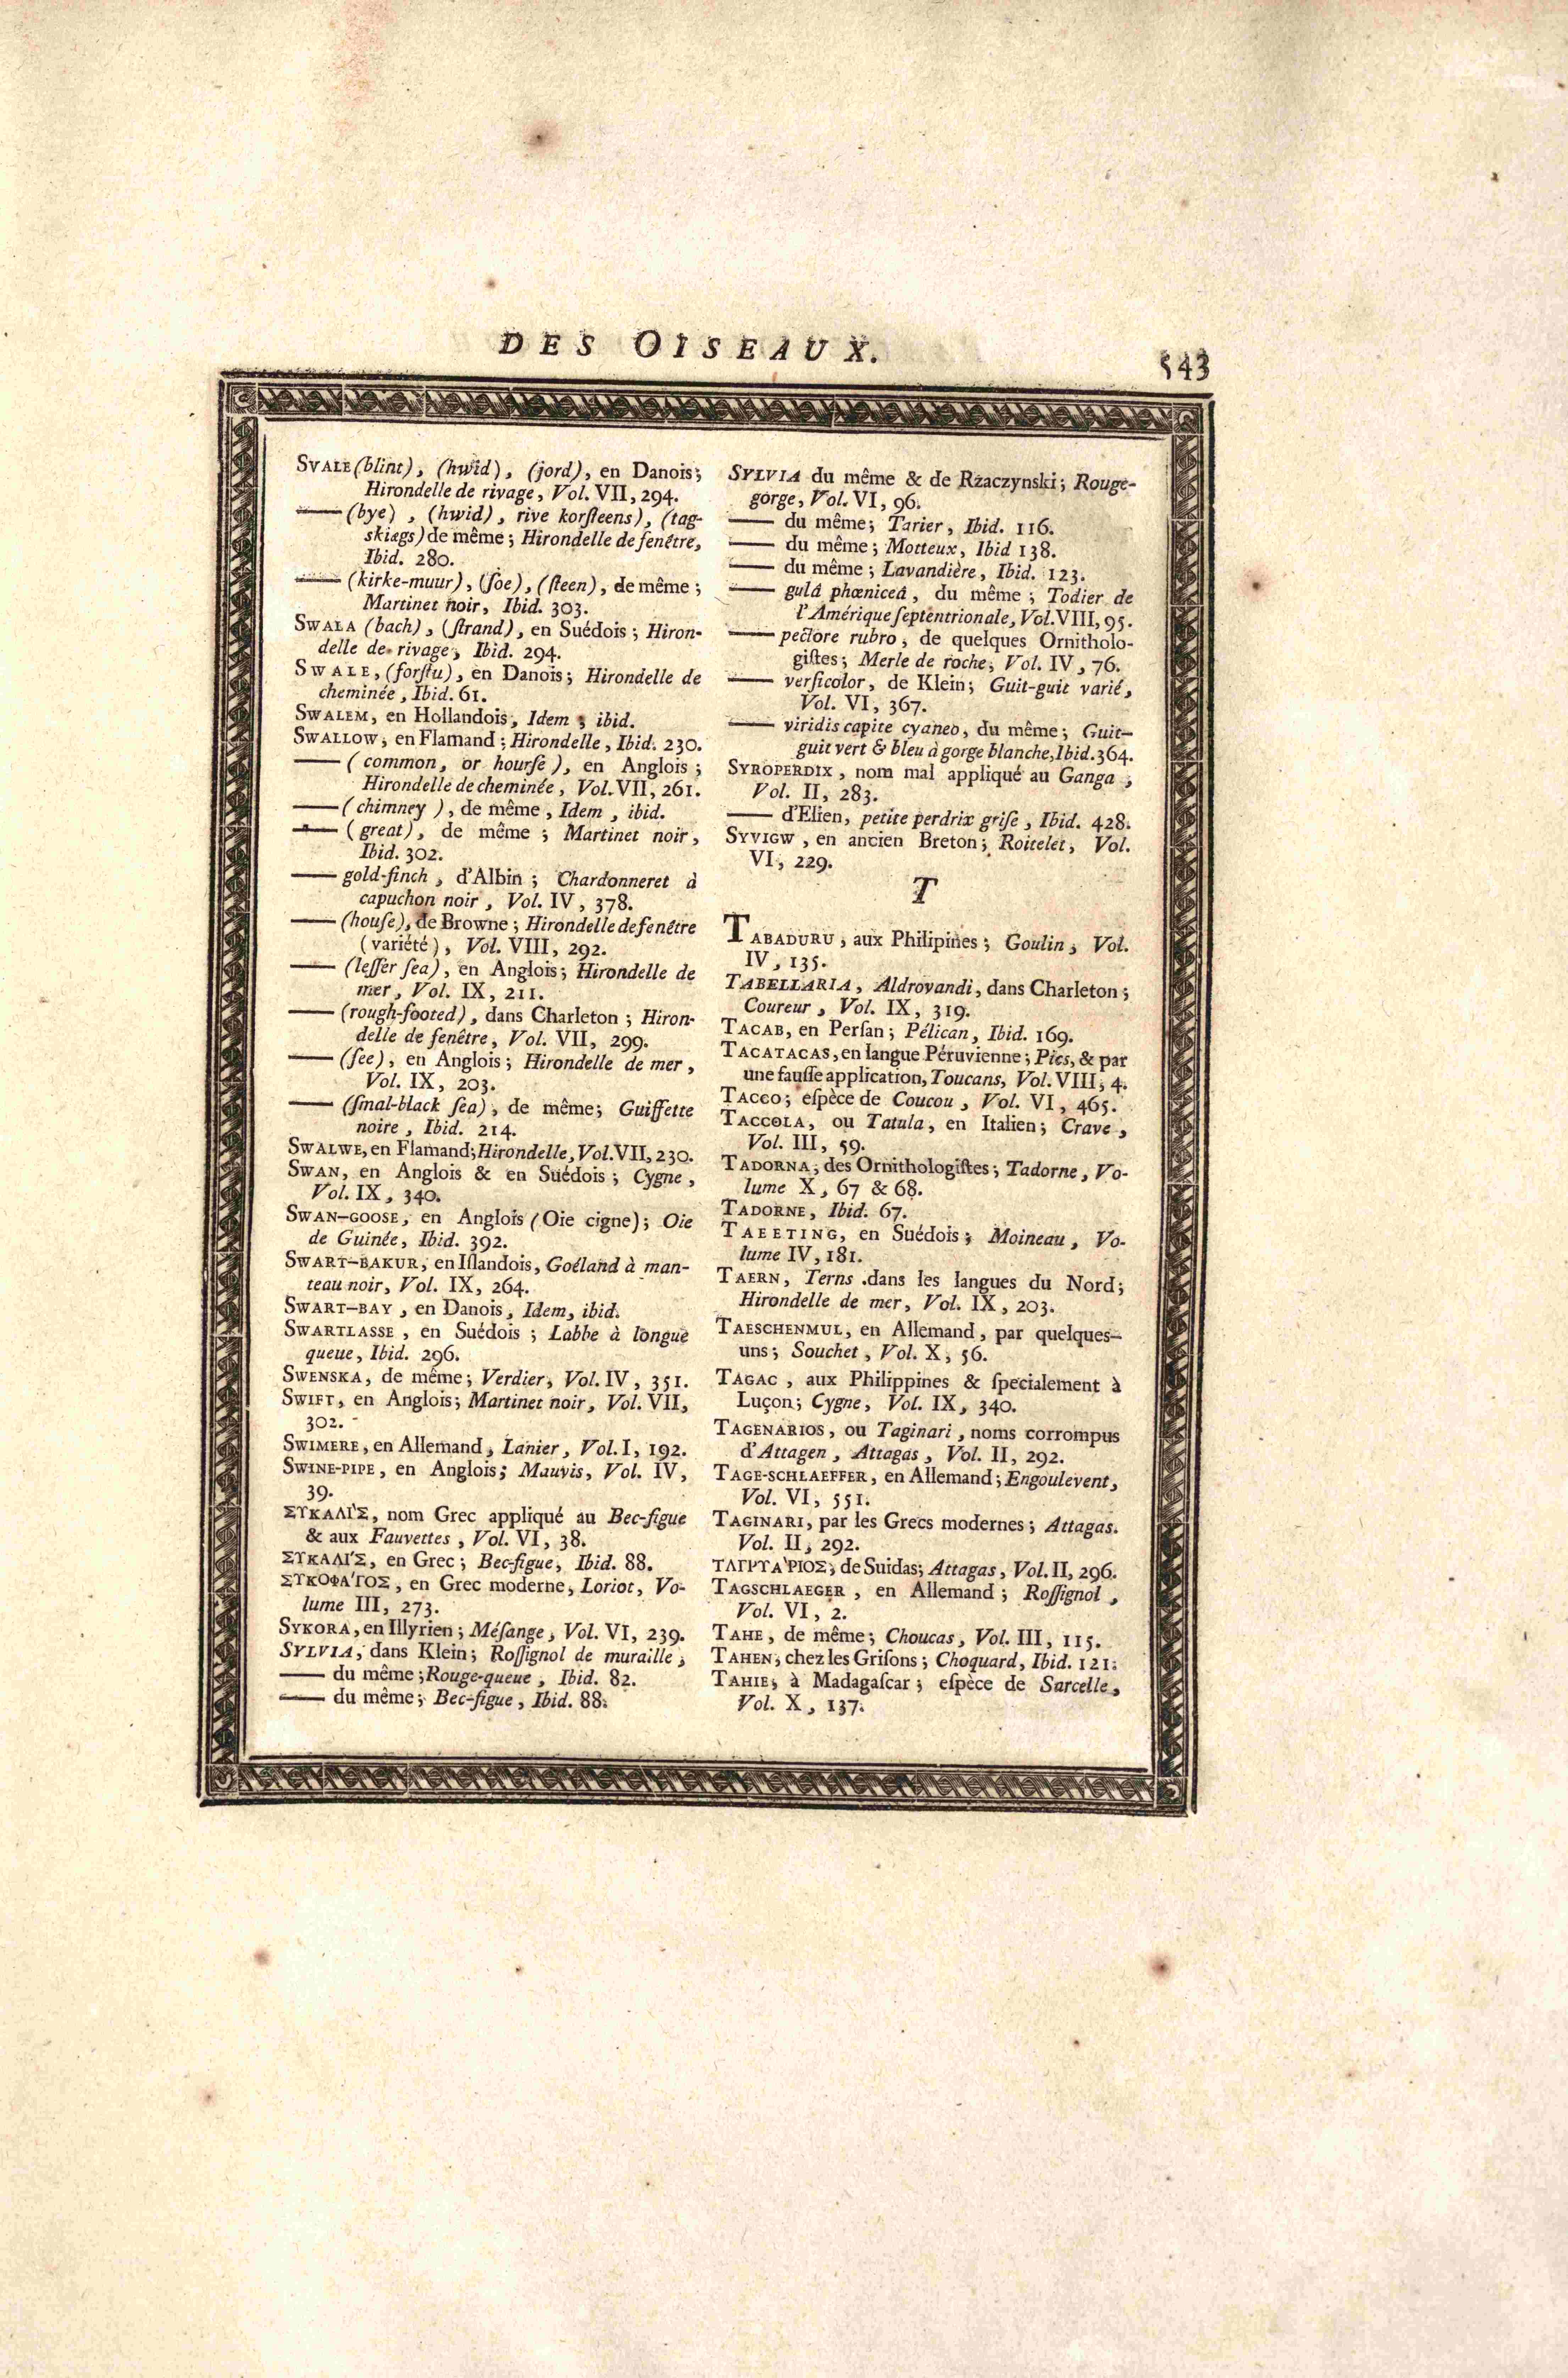 DES OISEAUX.
543
SVALE (blint), (hwid), (jord), en Danois;
Hirondelle de rivage, Vol. VII, 294.
—— (bye), (hwid), rive korſteens), (tag-
skiægs) de même; Hirondelle de fenêtre,
Ibid. 280.
—— (kirke-muur), (ſoe), (ſteen), de même;
Martinet noir, Ibid. 303.
SWALA (bach), (ſtrand), en Suédois; Hiron-
delle de rivage, Ibid. 294.
SWALE, (forſtu), en Danois; Hirondelle de
cheminée, Ibid. 61.
SWALEM, en Hollandois, Idem, ibid.
SWALLOW, en Flamand; Hirondelle, Ibid. 230.
—— (common, or hourſe), en Anglois;
Hirondelle de cheminée, Vol. VII, 261.
—— (chimney), de même, Idem, ibid.
—— (great), de même; Martinet noir,
Ibid. 302.
—— gold-finch, d'Albin; Chardonneret à
capuchon noir, Vol. IV, 378.
—— (houſe), de Browne; Hirondelle de fenêtre
(variété), Vol. VIII, 292.
—— (leſſer ſea), en Anglois; Hirondelle de
mer, Vol. IX, 211.
—— (rough-footed), dans Charleton; Hiron-
delle de fenêtre, Vol. VII, 299.
—— (ſee), en Anglois; Hirondelle de mer,
Vol. IX, 203.
—— (ſmal-black ſea), de même; Guiffette
noire, Ibid. 214.
SWALWE, en Flamand; Hirondelle, Vol. VII, 230.
SWAN, en Anglois & en Suédois; Cygne,
Vol. IX, 340.
SWAN-GOOSE, en Anglois (Oie cigne); Oie
de Guinée, Ibid. 392.
SWART-BAKUR, en Iſlandois, Goéland à man-
teau noir, Vol. IX, 264.
SWART-BAY, en Danois, Idem, ibid.
SWARTLASSE, en Suédois; Labbe à longue
queue, Ibid. 296.
SWENSKA, de même; Verdier, Vol. IV, 351.
SWIFT, en Anglois; Martinet noir, Vol. VII,
302.
SWIMERE, en Allemand, Lanier, Vol. I, 192.
SWINE-PIPE, en Anglois; Mauvis, Vol. IV,
39.
ΣΥΚΑΛΙΣ, nom Grec appliqué au Bec-figue
& aux Fauvettes, Vol. VI, 38.
ΣΥΚΑΛΙΣ, en Grec; Bec-figue, Ibid. 88.
ΣΥΚΟΦΑΓΟΣ, en Grec moderne, Loriot, Vo-
lume III, 273.
SYKORA, en Illyrien; Méſange, Vol. VI, 239.
SYLVIA, dans Klein; Roſſignol de muraille,
—— du même; Rouge-queue, Ibid. 82.
—— du même; Bec-figue, Ibid. 88.
SYLVIA du même & de Rzaczynski; Rouge-
gorge, Vol. VI, 96.
—— du même; Tarier, Ibid. 116.
—— du même; Motteux, Ibid 138.
—— du même; Lavandière, Ibid. 123.
—— gulâ phœniceâ, du même; Todier de
l'Amérique ſeptentrionale, Vol. VIII, 95.
—— pectore rubro, de quelques Ornitholo-
giſtes; Merle de roche, Vol. IV, 76.
—— verſicolor, de Klein; Guit-guit varié,
Vol. VI, 367.
—— viridis capite cyaneo, du même; Guit-
guit vert & bleu à gorge blanche, Ibid. 364.
SYROPERDIX, nom mal appliqué au Ganga,
Vol. II, 283.
—— d'Elien, petite perdrix griſe, Ibid. 428.
SYVIGW, en ancien Breton; Roitelet, Vol.
VI, 229.
T
TABADURU, aux Philipines; Goulin, Vol.
IV, 135.
TABELLARIA, Aldrovandi, dans Charleton;
Coureur, Vol. IX, 319.
TACAB, en Perſan; Pélican, Ibid. 169.
TACATACAS, en langue Péruvienne; Pics, & par
une fauſſe application, Toucans, Vol. VIII, 4.
TACCO; eſpèce de Coucou, Vol. VI, 465.
TACCOLA, ou Tatula, en Italien; Crave,
Vol. III, 59.
TADORNA, des Ornithologiſtes; Tadorne, Vo-
lume X, 67 & 68.
TADORNE, Ibid. 67.
TAEETING, en Suédois; Moineau, Vo-
lume IV, 181.
TAERN, Terns dans les langues du Nord;
Hirondelle de mer, Vol. IX, 203.
TAESCHENMUL, en Allemand, par quelques-
uns; Souchet, Vol. X, 56.
TAGAC, aux Philippines & ſpecialement à
Luçon; Cygne, Vol. IX, 340.
TAGENARIOS, ou Taginari, noms corrompus
d'Attagen, Attagas, Vol. II, 292.
TAGE-SCHLAEFFER, en Allemand; Engoulevent,
Vol. VI, 551.
TAGINARI, par les Grecs modernes; Attagas.
Vol. II, 292.
ΤΑΓΡΥΑΡΙΟΣ, de Suidas; Attagas, Vol. II, 296.
TAGSCHLAEGER, en Allemand; Roſſignol,
Vol. VI, 2.
TAHE, de même; Choucas, Vol. III, 115.
TAHEN, chez les Griſons; Choquard, Ibid. 121.
TAHIE, à Madagaſcar; eſpèce de Sarcelle,
Vol. X, 137.